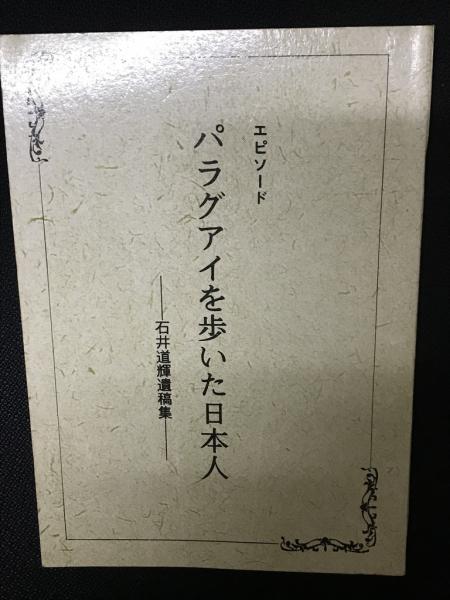 エピソード
パラグアイを歩いた日本人
──石井道輝遺稿集──